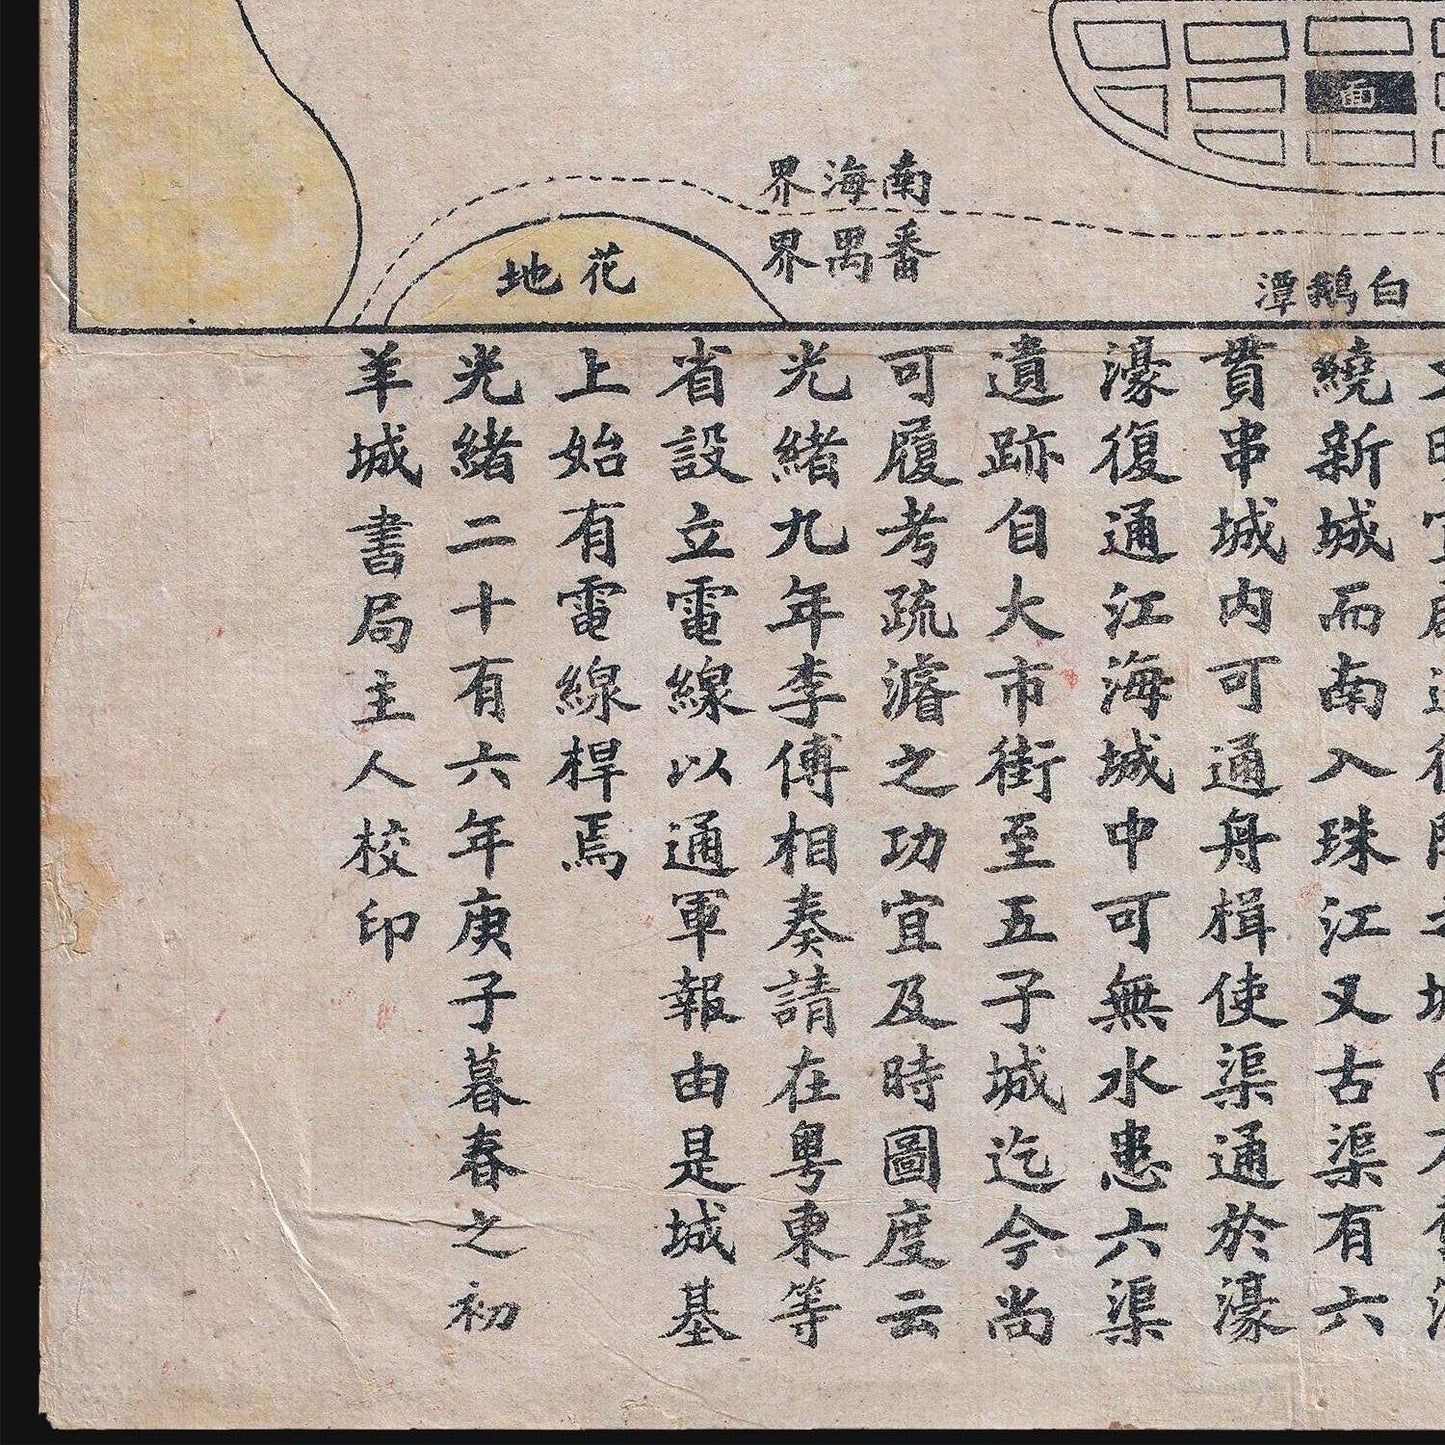 面
南海界
番禺界
白鵝潭
花地
繞新城而南入珠江又古渠有六
貫串城内可通舟楫使渠通於濠
濠復通江海城中可無水患六渠
遺跡自大市街至五子城迄今尚
可履考疏濬之功宜及時圖度云
光緒九年李傅相奏請在粵東等
省設立電線以通軍報由是城基
上始有電線桿焉
光緒二十有六年庚子暮春之初
羊城書局主人校印